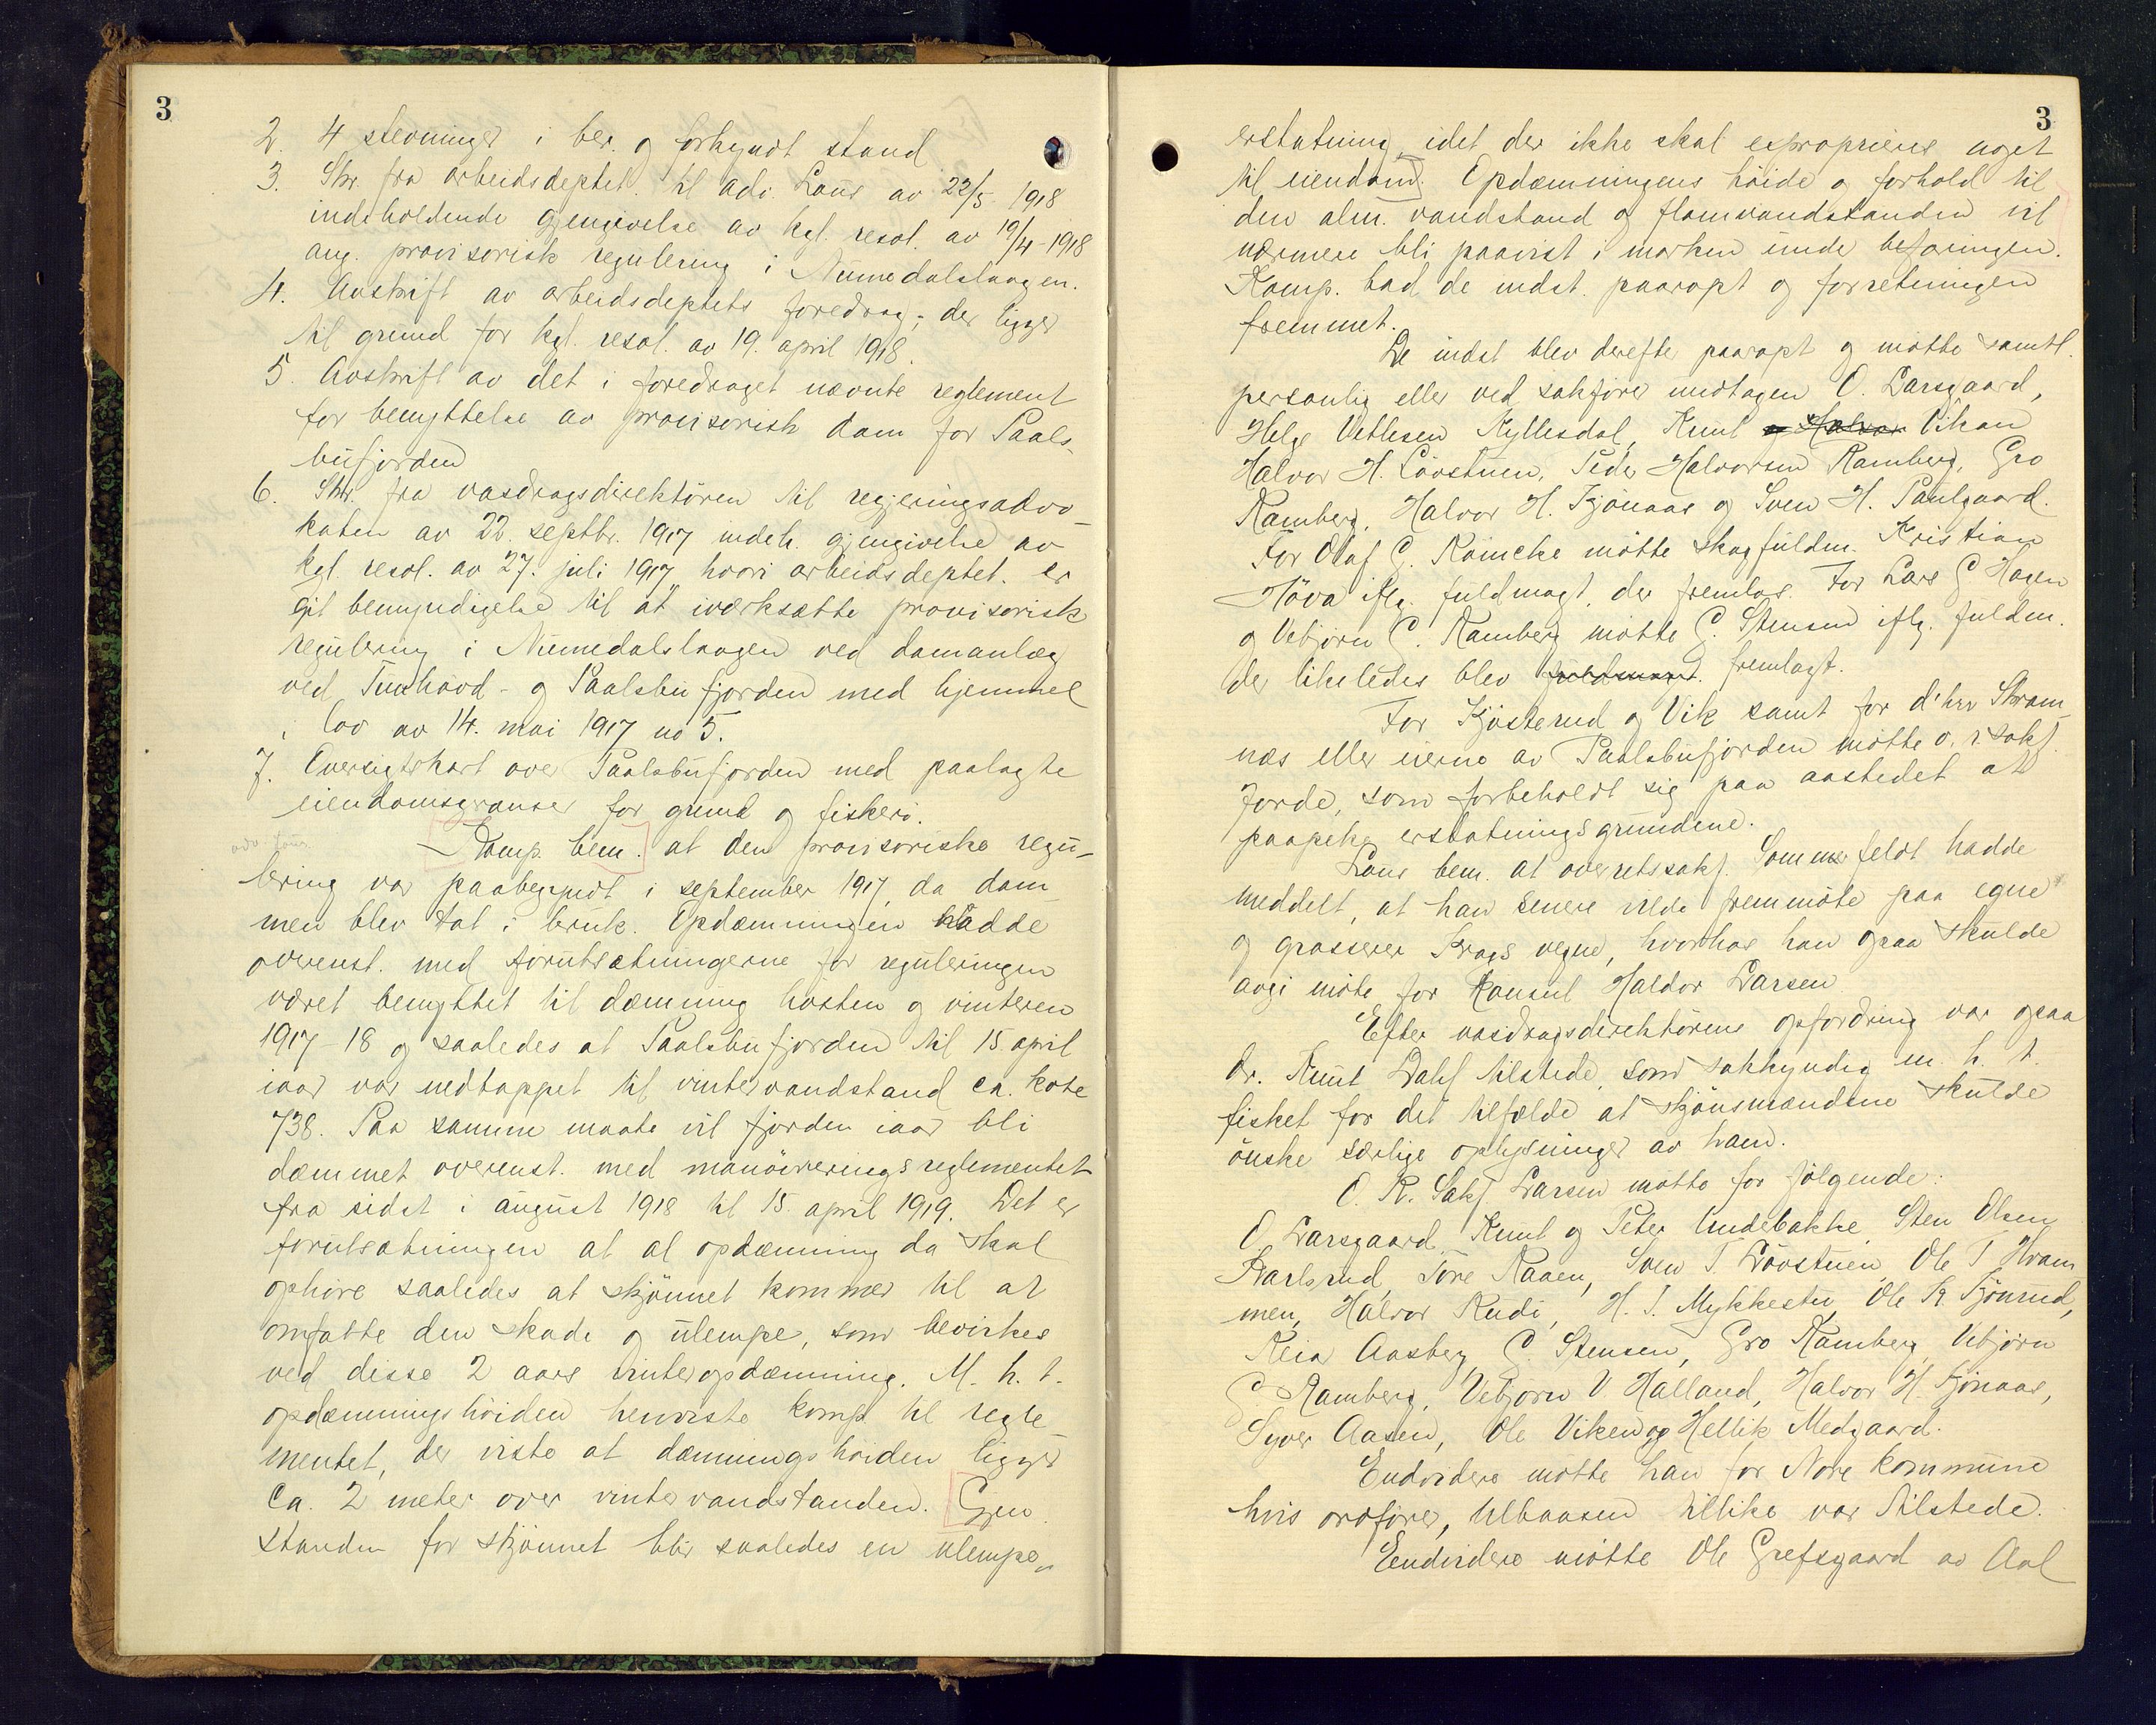 3
2. 4 stevninger i ber. og forkyndt stand
3. Skr. fra arbeidsdeptet. til adv. Lous av 22/5 1918
indeholdende gjengivelse av kgl. resol. av 19/4-1918
ang. provisorisk regulering i Numedalslaagen.
4. Avskrift av arbeidsdeptets foredrag, der ligger
til grund for kgl. resol. av 19. april 1918.
5. Avskrift av det i foredraget nævnte reglement
for benyttelse av provisorisk dam for Paals-
bufjorden
6. Skr. fra vasdragsdirektören til regjeringsadvo-
katen av 22. septbr. 1917 indeh. gjengivelse av
kgl. resol. av 27. juli 1917 hvori arbeidsdeptet. er
git bemyndigelse til at iverksætte provisorisk
regulering i Numedalslaagen ved damanlæg
ved Tunhövd- og Paalsbufjorden med hjemmel
i lov av 14. mai 1917 no 5.
7. Oversigtskart over Paalsbufjorden med paalagte
eiendomsgrænser for grund og fiskeri.
adv. Lous.
Komp. bem. at den provisoriske regu-
lering var paabegyndt i september 1917, da dam-
men blev tat i bruk. Opdæmningen hadde
overenst. med forutsætningerne for reguleringen
været benyttet til dæmning høsten og vinteren
1917-18 og saaledes at Paalsbufjorden til 15. april
iaar var nedtappet til vintervandstand ca. kote
738. Paa samme maate vil fjorden iaar bli
dæmmet overenst. med manöverings reglementet
fra sidst i august 1918 til 15. april 1919. Det er
forutsætningen at al opdæmning da skal
ophöre saaledes at skjönnet kommer til at
omfatte den skade og ulempe, som bevirkes
ved disse 2 aars vinteropdæmning. M. h. t.
opdæmningshöiden henviste komp. til regle-
mentet, der viste at dæmningshöiden ligger
Ca. 2 meter over vintervandstanden. Gjen-
standen for skjönnet blir saaledes en ulempe„
3
erstatning, idet der ikke skal exproprieres noget
til eiendom. Opdæmningens höide og forhold til
den alm. vandstand og flomvandstanden vil
nærmere bli paavist i marken under befaringen.
Komp. bad de indst. paaropt og forretningen
fremmet.
De indst blev derefter paaropt og mötte samtl.
personlig eller ved sakförer undtagen O. Larsgaard,
Helge Vetlesen Kyllesdal, Knut og Halvor Vikan
Halvor H. Lövstuen, Peder Halvorsen Ramberg, Gro
Ramberg, Halvor H. Kjönaas og Sven H. Paulgaard.
For Olaf G. Röincke mötte skogfuldm. Kristian
Höva iflg. fuldmagt, der fremlas. For Lars G Hagen
og Vebjörn G. Ramberg mötte G. Stensen iflg. fuldm.
der likeledes blev fuldmagt. fremlagt.
For Kjösterud og Vik samt for d'hrr Stram-
næs eller eierne av Paalsbufjorden mötte o. r. sakf.
Jorde, som forbeholdt sig paa aastedet at
paapeke erstatningsgrundene.
Lous bem. at overretssakf. Sommerfeldt hadde
meddelt, at han senere vilde fremmöte paa egne
og grosserer Krags vegne, hvorhos han ogsaa skulde
avgi möte for Konsul Haldor Larsen.
Efter vasdragsdirektörens opfordring var ogsaa
Dr. Knut Dahl tilstede som sakkyndig m. h. t.
fisket for det tilfælde at skjönsmændene skulde
önske særlige oplysninger av ham.
O. R. Sakf. Larsen mötte for fölgende:
O. Larsgaard, Knut og Peter Undebakke, Sten Olsen
Karlsrud, Tore Raaen, Sven T. Lövstuen, Ole T Hvam-
men, Halvor Rudi, H. T. Mykkestu, Ole K. Kjönrud,
Reia Aasberg, G. Stensen, Gro Ramberg, Vebjörn
G. Ramberg, Vebjörn V. Halland, Halvor H. Kjönaas,
Syver Aasen, Ole Viken og Hellik Medgaard.
Endvidere mötte han for Nore kommune
hvis ordförer, Ulbaasen tillike var tilstede.
Eendvidere mötte Ole Grefsgaard av Aal